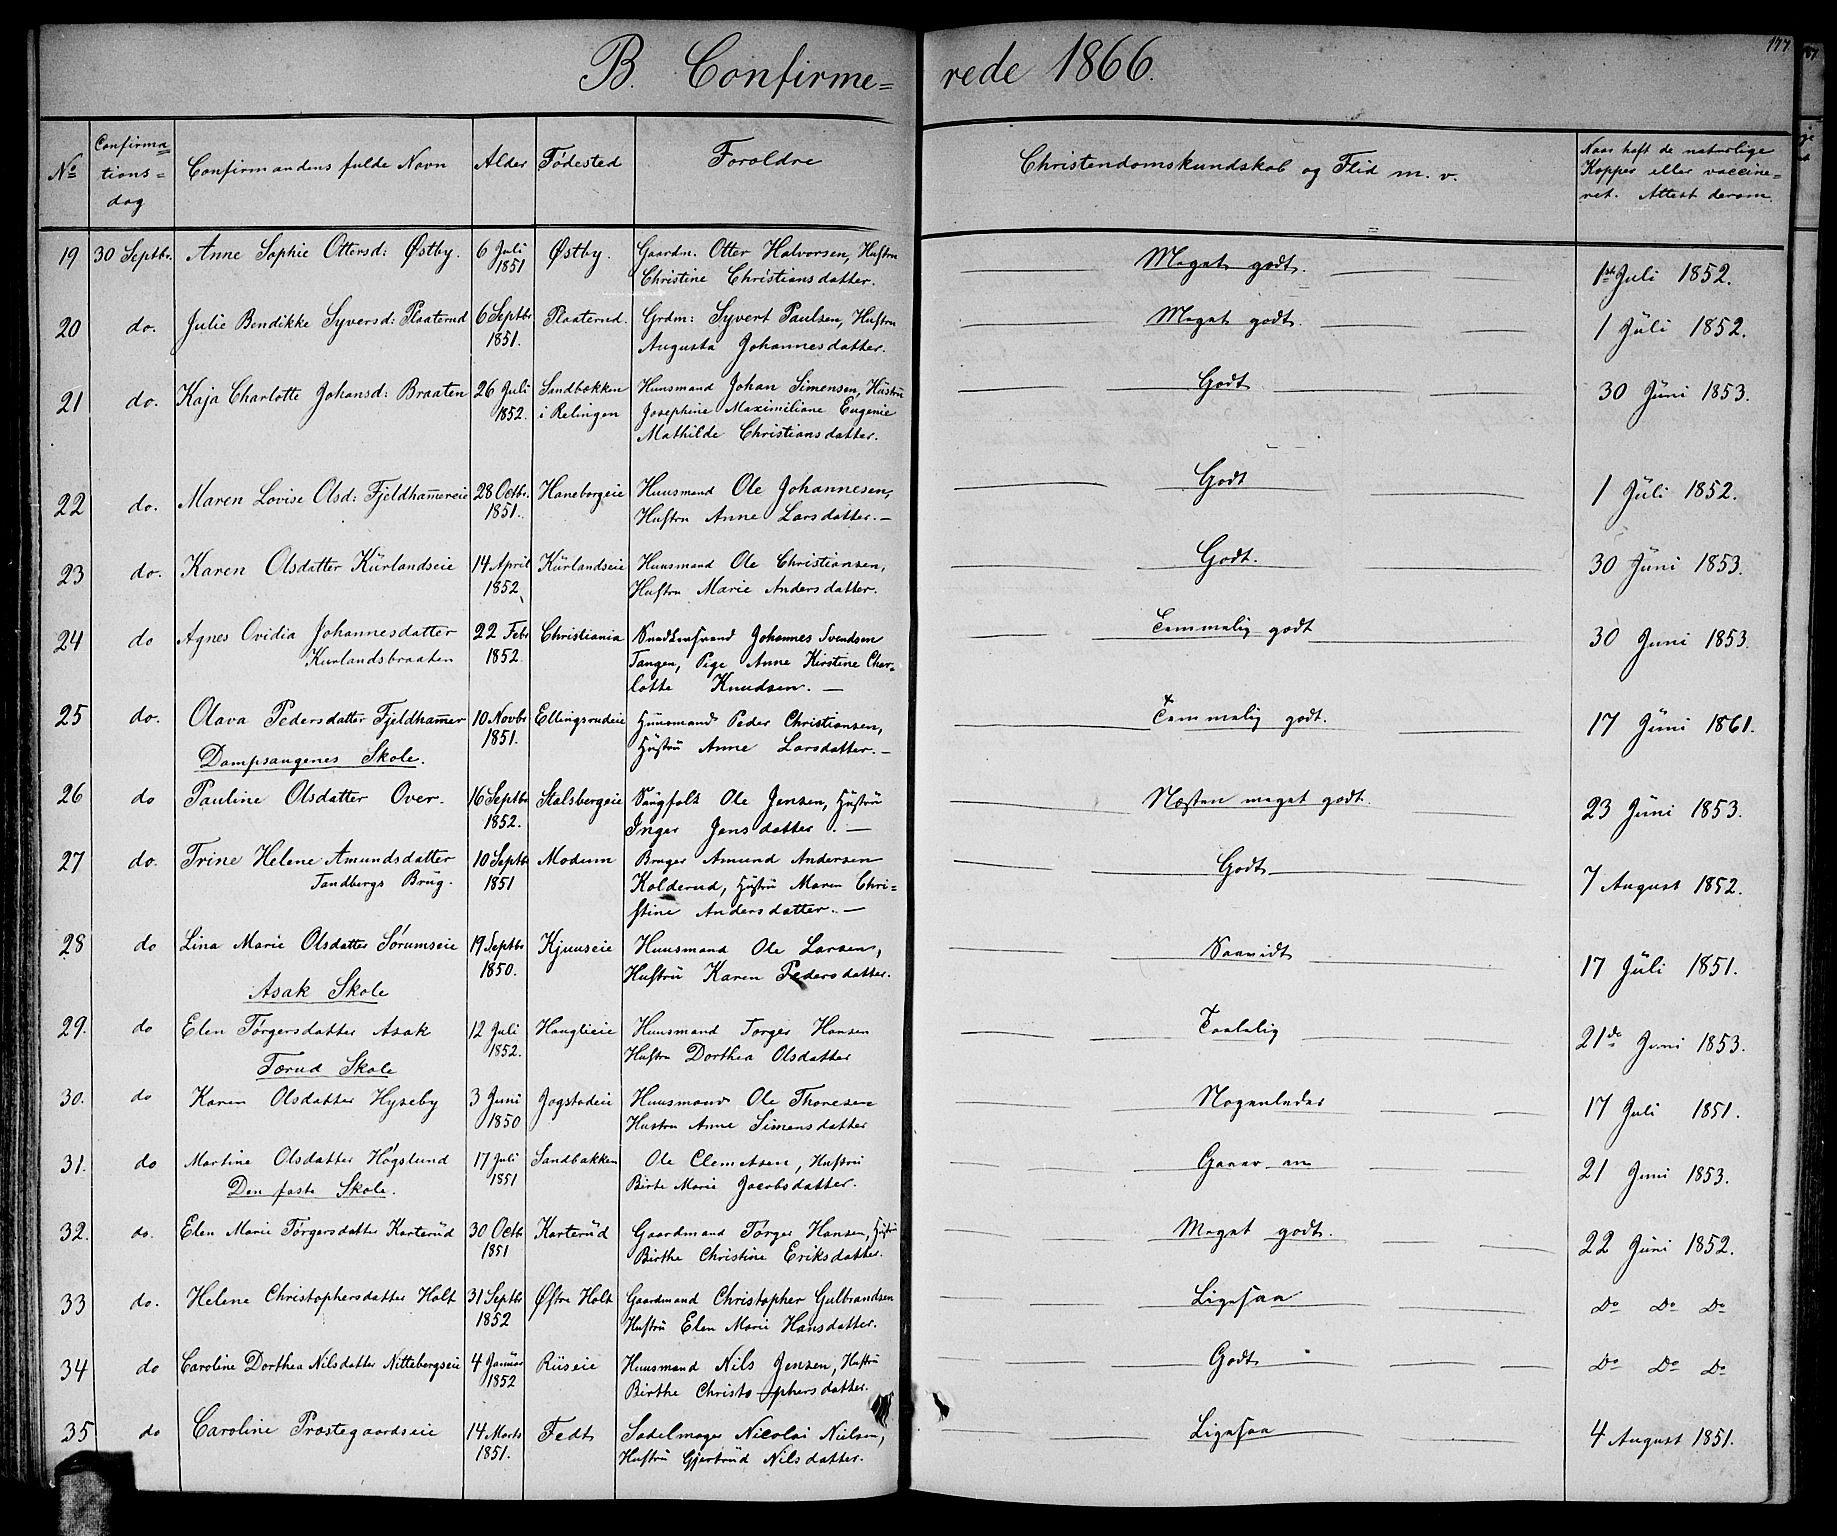 177
B. Confirme= rede 1866.
No Confirma=tions=dag Confirmandens fulde Navn Alder Fødested Foroldre Christendomskundskab og Flid m. v. Naar haft de naturlige Kopper eller vaccine=ret. Attest derom.
19 30 Septbr. Anne Sophie Ottersd: Østby. 6 Juli Østby. Gaardm. Otter Halvorsen, Hustru Meget godt. 1ste Juli 1852.
1851 Christine Christiansdatter.
20 do. Julie Bendikke Syversd: Plaaterud 6 Septbr Plaaterud. Grdm: Syvert Paulsen, Hustru Meget godt. 1 Juli 1852.
1851. Augusta Johannesdatter.
21 do. Kaja Charlotte Johansd: Braaten 26 Juli Sandbakken Huusmand Johan Simensen, Hustru Godt 30 Juni 1853.
1852. i Relingen Josephine Maximiliane Eugenie
Mathilde Christiansdatter.
22 do. Maren Lovise Olsd: Fjeldham̅ereie 28 Octbr. Haneborgeie Huusmand Ole Johannesen, Godt 1 Juli 1852.
1851. Hustru Anne Larsdatter. —
23 do. Karen Olsdatter Kurlandseie 14 April Kurlandseie Huusmand Ole Christiansen, Godt. 30 Juni 1853.
1852 Hustru Marie Andersdatter.
24 do Agnes Ovidia Johannesdatter 22 Febr Christiania Johannes Svendsen Temmelig godt 30 Juni 1853.
Kurlandsbraaten 1852. Tangen, Pige Anne Kirstine Char=
lotte Knudsen. —
25 do. Olava Pedersdatter Fjeldham̅er 10 Novbr Ellingsrudeie Huusmand Peder Christiansen, Temmelig godt. 17 Juni 1861.
1851. Hustru Anne Larsdatter. —
Dampsaugenes Skole.
26 do Pauline Olsdatter Over. 16 Septbr Stalsbergeie Saugfolk Ole Jensen, Hustru Næsten meget godt. 23 Juni 1853.
1852. Inger Jensdatter. —
27 do. Trine Helene Amundsdatter 10 Septbr Modum Bruger Amund Andersen Godt 7 August 1852.
Tandbergs Brug. 1851 Kolderud, Hustru Maren Chri=
stine Andersdatter. —
28 do Lina Marie Olsdatter Sørumseie 19 Septbr Kjuuseie Huusmand Ole Larsen, Saavidt 17 Juli 1851.
1850. Hustru Karen Pedersdatter.
Asak Skole
29. do Elen Tørgersdatter Asak 12 Juli Hauglieie Huusmand Torger Hansen Taalelig 21de Juni 1853.
1852. Hustru Dorthea Olsdatter
Tærud Skole
30. do Karen Olsdatter Hyseby 3 Juni Jogstadeie Huusmand Ole Thoresen Nogenledes 17 Juli 1851.
1850 Hustru Anne Simensdatter
31. do Martine Olsdatter Høgslund 17 Juli Sandbakken Ole Clemetsen, Hustru 21 Juni 1853.
1851 Birte Marie Jacobsdatter.
Den faste Skole.
32. do. Elen Marie Tørgersdatter Karterud 30 Octbr Karterud Gaardmand Tørger Hansen, Hustru Meget godt. 22 Juni 1852.
1851 Birthe Christine Eriksdatter.
33 do. Helene Christophersdatter Holt 31 Septbr Østre Holt Gaardmand Christopher Gulbrandsen Ligesaa Do Do Do
1852 Hustru Elen Marie Hansdatter.
34 do Caroline Dorthea Nilsdatter Nittebergseie 4 Januar Riiseie Huusmand Nils Jensen, Hustru Godt Do Do Do
1852 Birthe Christophersdatter.
35 do Caroline Præstegaardseie 14 Marts Fedt Sadelmager Nicolai Nielsen, Ligesaa 4 August 1851.
1851. Hustru Gjertrud Nilsdatter.